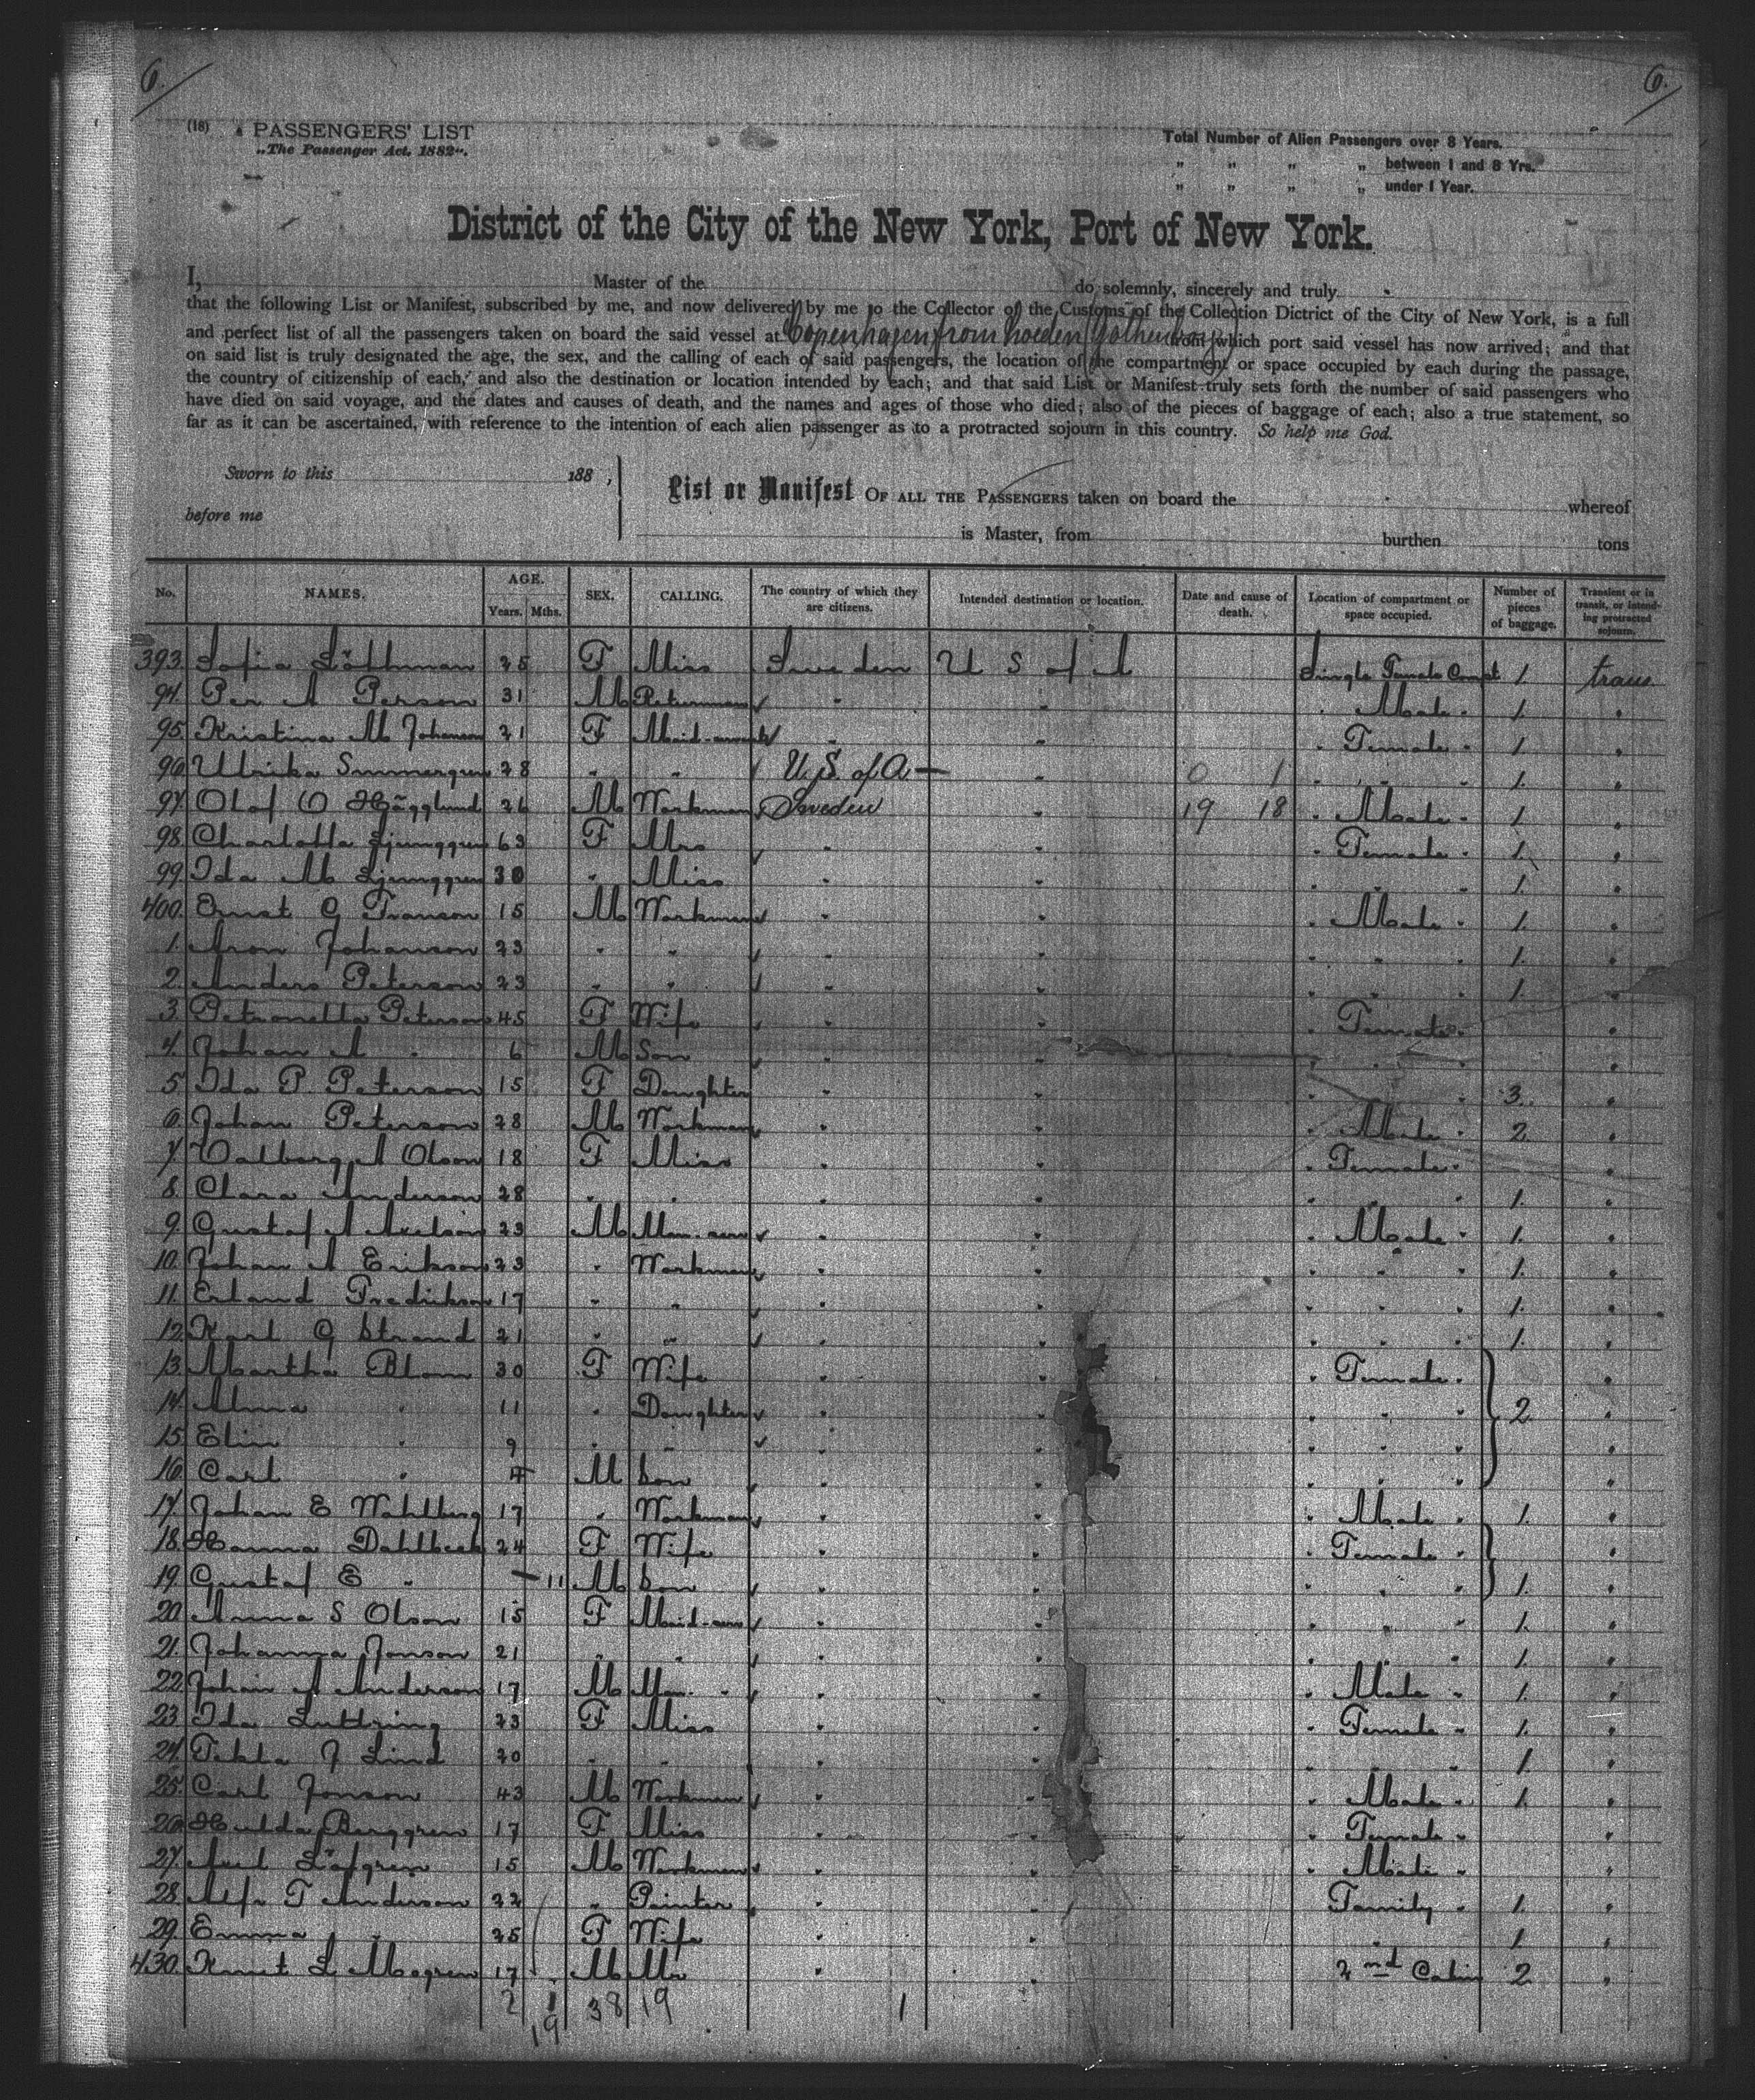 6. 6.
(18) PASSENGERS' LIST
„The Passenger Act, 1882“.
Total Number of Alien Passengers over 8 Years.
„ „ „ „ between 1 and 8 Yrs.
„ „ „ „ under 1 Year.
District of the City of the New York, Port of New York.
I, Master of the do solemnly, sincerely and truly
that the following List or Manifest, subscribed by me, and now delivered by me to the Collector of the Customs of the Collection District of the City of New York, is a full
and perfect list of all the passengers taken on board the said vessel at Copenhagen from (Gothenburg) from which port said vessel has now arrived; and that
on said list is truly designated the age, the sex, and the calling of each of said passengers, the location of the compartment or space occupied by each during the passage,
the country of citizenship of each, and also the destination or location intended by each; and that said List or Manifest truly sets forth the number of said passengers who
have died on said voyage, and the dates and causes of death, and the names and ages of those who died; also of the pieces of baggage of each; also a true statement, so
far as it can be ascertained, with reference to the intention of each alien passenger as to a protracted sojourn in this country. So help me God.
Sworn to this 188 ,
before me
List or Manifest OF ALL THE PASSENGERS taken on board the whereof
is Master, from burthen tons
No. NAMES. AGE. Years. Mths. SEX. CALLING. The country of which they are citizens. Intended destination or location. Date and cause of death. Location of compartment or space occupied. Number of pieces of baggage. Transient or in transit, or intending protracted sojourn.
393. Sofia 25 F Miss Sweden U S of A Single Female Compt 1. trans
94. Per A Person 31 M " " " Male " 1. "
95. Kristina M Johanson 21 F Maid-servant " " " Female " 1. "
96. Ulrika 28 " " U.S. of A — " 0 1 " " " 1. "
97. Olof O Hägglund 26 M Workman Sweden " 19 18 " Male " 1. "
98. Charlotta Ljunggren 63 F Mrs " " " Female " 1. "
99. Ida M Ljunggren 30 " Miss " " " " " 1. "
400. Ernst G Franson 15 M Workman " " " Male " 1. "
1. Aron Johanson 23 " " " " " " " 1. "
2. Anders Peterson 23 " " " " " " " 1. "
3. Petronella Peterson 45 F Wife " " " Female " "
4. Johan A " 6 M Son " " " " " "
5. Ida P. Peterson 15 F Daughter " " " " 3. "
6. Johan Peterson 28 M Workman " " " Male " 2 "
7. Valborg A Olson 18 F Miss " " " Female " "
8. Clara Anderson 28 " " " " " " " 1. "
9. Gustaf A Axelson 23 M Man-serv " " " Male " 1. "
10. Johan A Erikson 23 " Workman " " " " " 1. "
11. Erland Fredrikson 17 " " " " " " " 1. "
12. Karl G Strand 21 " " " " " " " 1. "
13. Martha Blom 30 F Wife " " " Female " "
14. Alma " 11 " Daughter " " " " " 2. "
15. Elin " 9 " " " " " " " "
16. Carl " 4 M Son " " " " " "
17. Johan E Wahlberg 17 " Workman " " " Male " 1. "
18. Hanna Dahlbeck 24 F Wife " " " Female " "
19. Gustaf E " — 11 M Son " " " " " 1. "
20. Anna S Olson 15 F Maid-serv " " " " " 1. "
21. Johanna Jonson 21 " " " " " " " 1. "
22. Johan A Anderson 17 M Man " " " " Male " 1. "
23. Ida 23 F Miss " " " Female " 1. "
24. Tekla J Lind 20 " " " " " " " 1. "
25. Carl Jonson 43 M Workman " " " Male " 1. "
26. Hulda Berggren 17 F Miss " " " Female " "
27. Axel Löfgren 15 M Workman " " " Male " "
28. Alfr T Anderson 22 " Painter " " Family " 1. "
29. Emma " 25 F Wife " " " 1 "
430. Knut L Mogren 17 M Mr " " 2nd Cabin 2 "
2 1 38 19 1
19